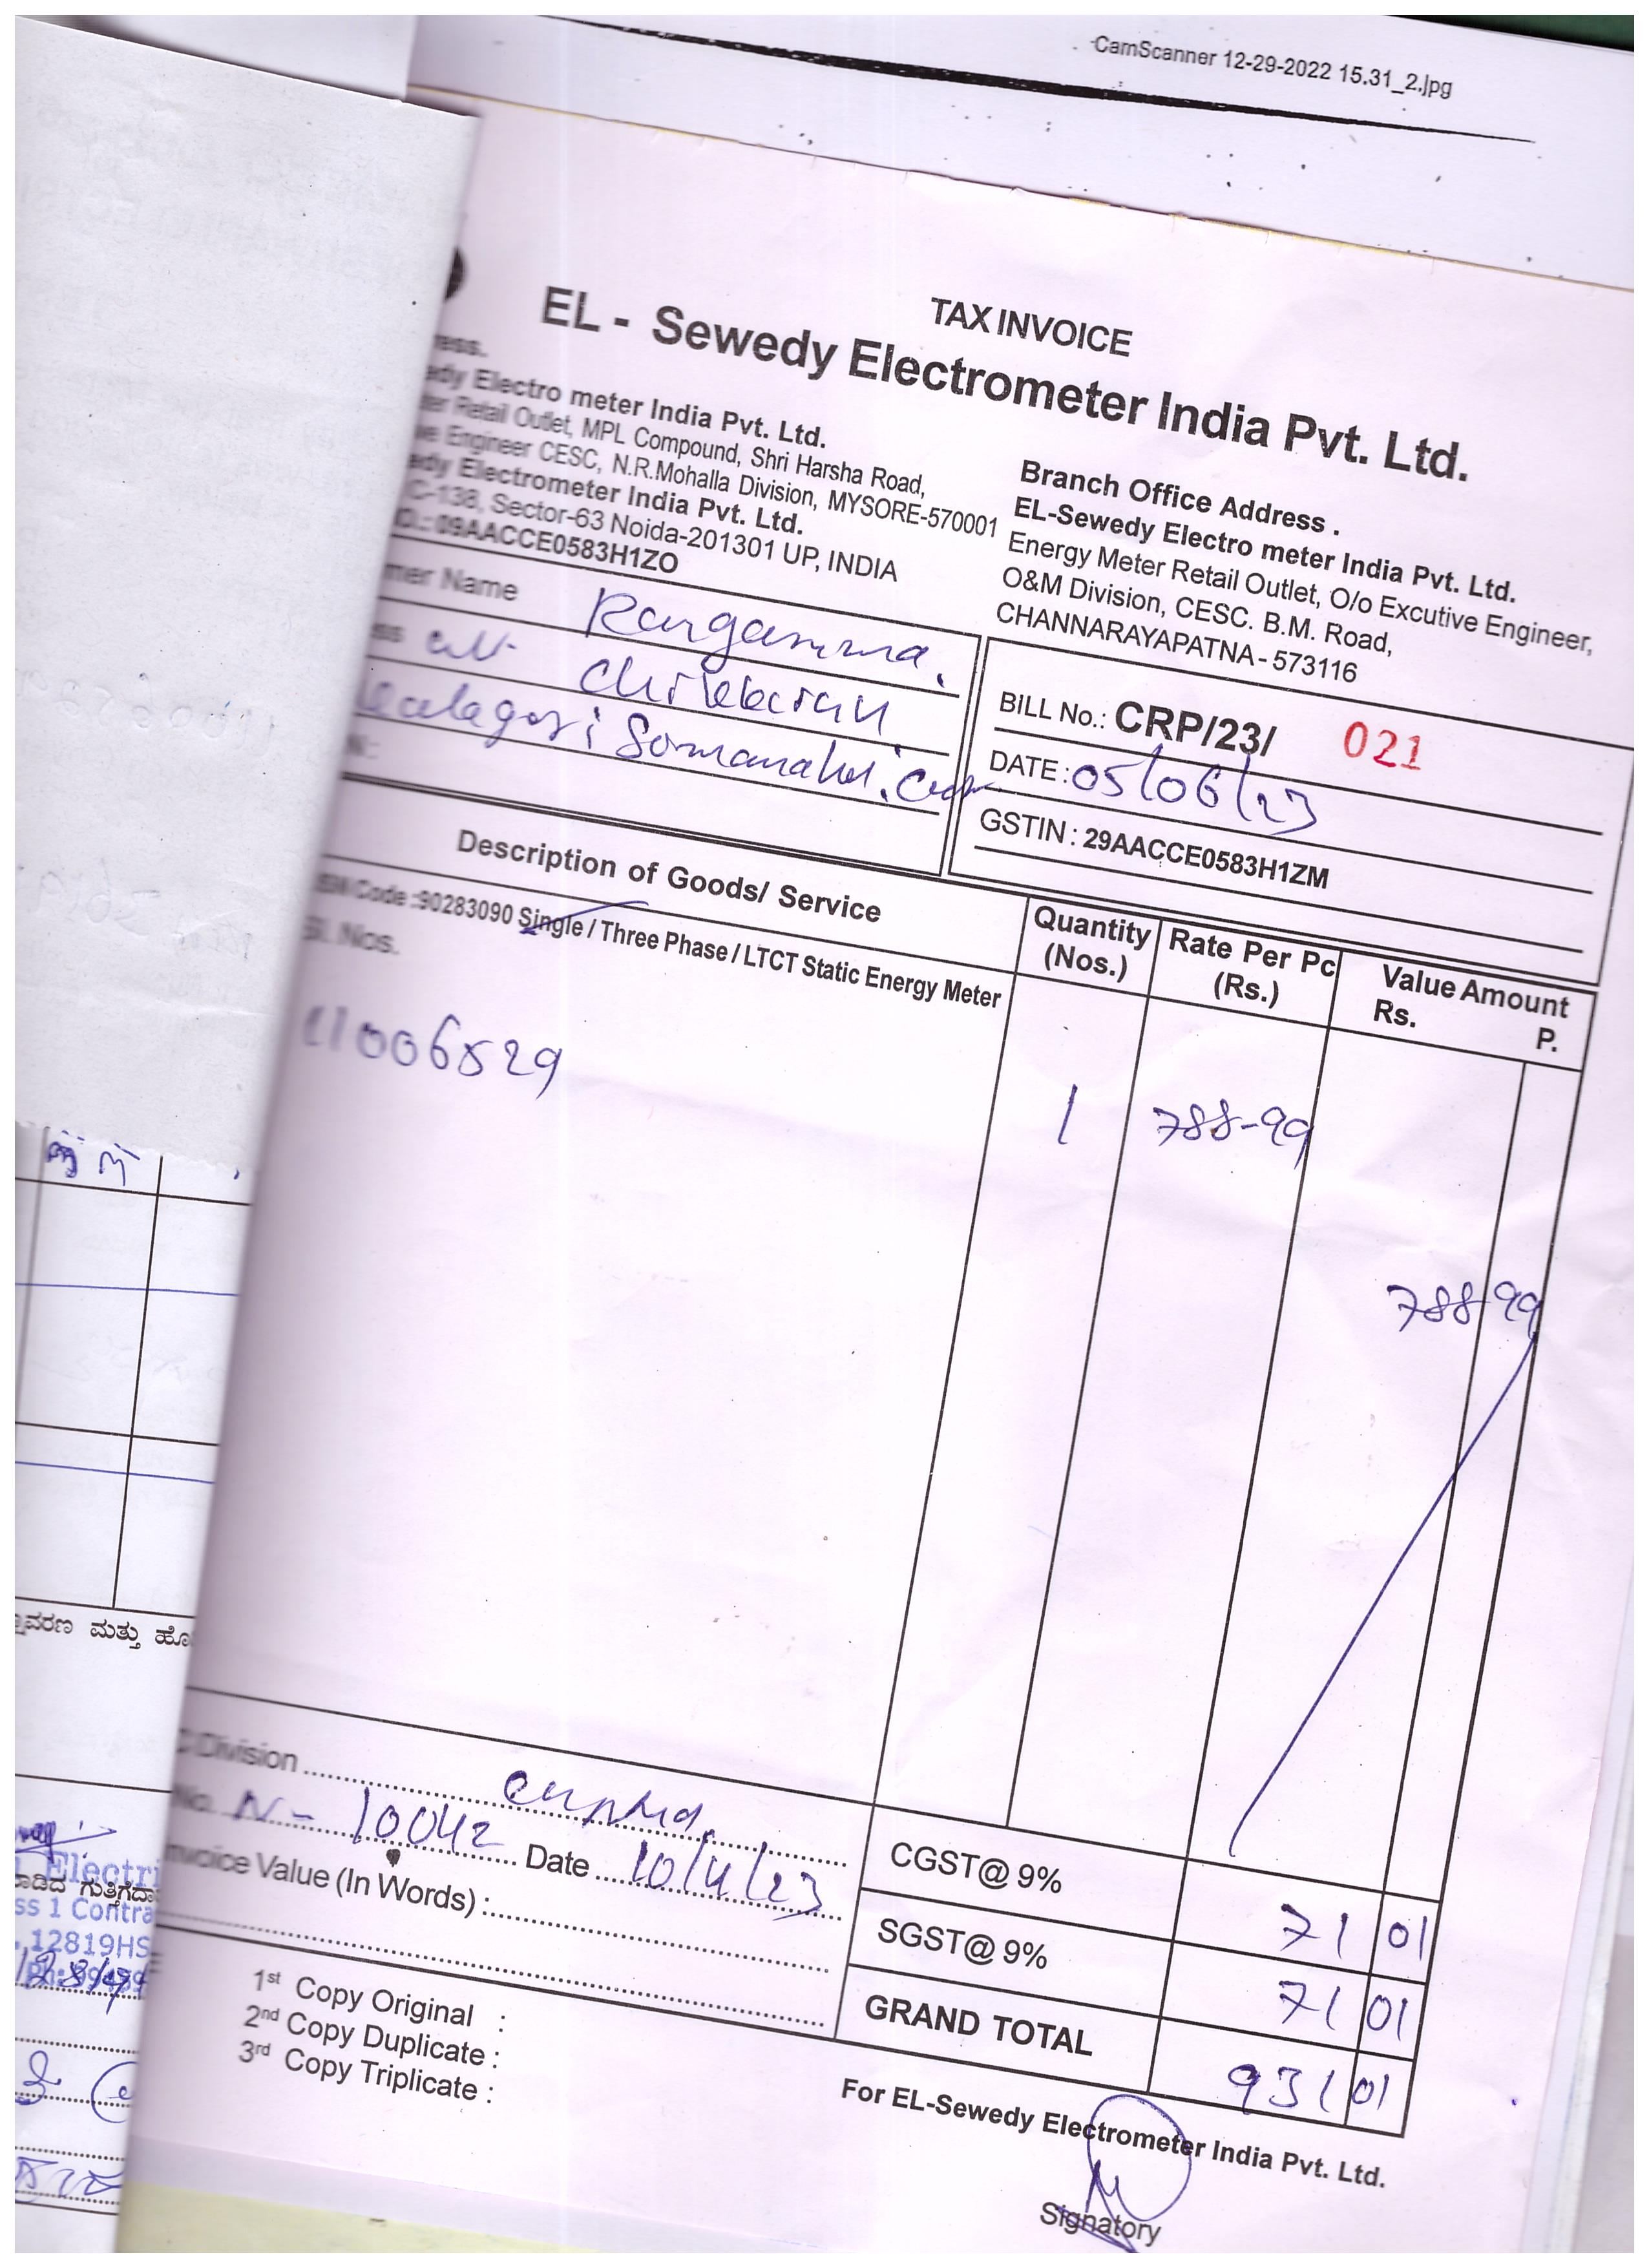 CamScanner 12-29-2022 15.31_2.jpg
TAX INVOICE
EL - Sewedy Electrometer India Pvt. Ltd.
ess.
edy Electro meter India Pvt. Ltd.
ter Retail Outlet, MPL Compound, Shri Harsha Road,
ve Engineer CESC, N.R.Mohalla Division, MYSORE-570001
edy Electrometer India Pvt. Ltd.
C-138, Sector-63 Noida-201301 UP, INDIA
09AACCE0583H1ZO
Branch Office Address .
EL-Sewedy Electro meter India Pvt. Ltd.
Energy Meter Retail Outlet, O/o Excutive Engineer,
O&M Division, CESC. B.M. Road,
CHANNARAYAPATNA - 573116
mer Name Rangamma.
ess
Somanahal.
N:
BILL No.: CRP/23/ 021
DATE : 05/06/23
GSTIN : 29AACCE0583H1ZM
Description of Goods/ Service
Quantity (Nos.)
Rate Per Pc (Rs.)
Value Amount
Rs. P.
Code :90283090 Single / Three Phase / LTCT Static Energy Meter
Sl. Nos.
11006529
1 788-99
788 99
Division
No. N- 10042 Date 10/4/23
nvoice Value (In Words) :
CGST@ 9% 71 01
SGST@ 9% 71 01
GRAND TOTAL 931 01
1st Copy Original :
2nd Copy Duplicate :
3rd Copy Triplicate :
For EL-Sewedy Electrometer India Pvt. Ltd.
Signatory
ವರಣ ಮತ್ತು ಹೊ
Electri
ss 1 Contra
12819HS